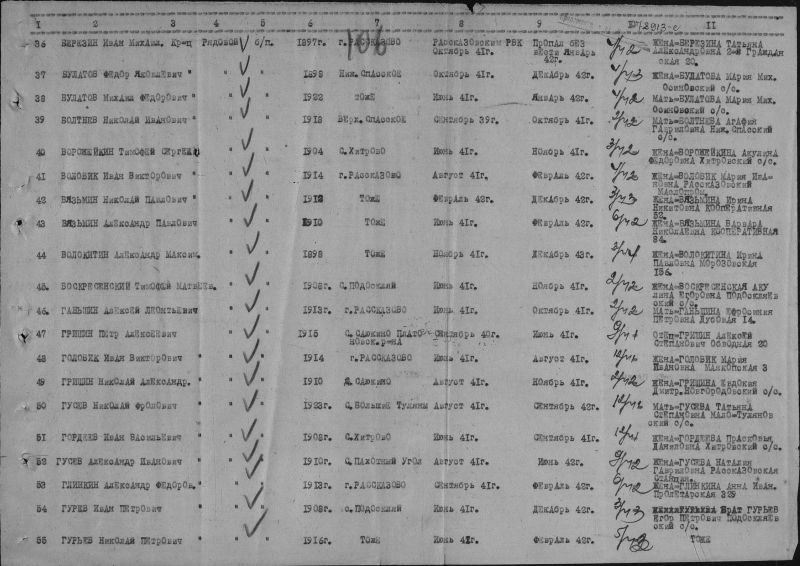 1 2 3 4 5 6 7 8 9 11
106
36 БЕРЕЗИН Иван Михаил. Кр-ц Рядовой б/п. 1897г. г.РАССКАЗОВО РАССКАЗОВСКИМ РВК ПРОПАЛ БЕЗ ЖЕНА=БЕРЕЗИНА ТАТЬЯНА
ОКТЯБРЬ 41г. ВЕСТИ ЯНВАРЬ АЛЕКСАНДРОВНА 2-Я ГРАЖДАН
42г. СКАЯ 20.
37 БУЛАТОВ ФЕДОР ЯКОВЛЕВИЧ " " " 1898 НИЖ. СПАССКОЕ ОКТЯБРЬ 41г. ДЕКАБРЬ 42г. ЖЕНА=БУЛАТОВА МАРИЯ МИХ.
ОСИНОВСКИЙ с/с.
38 БУЛАТОВ МИХАИЛ ФЕДОРОВИЧ " " " 1922 ТОЖЕ ИЮНЬ 41г. ЯНВАРЬ 42г. МАТЬ=БУЛАТОВА МАРИЯ МИХ.
ОСИНОВСКИЙ с/с.
39 БОЛТНЕВ НИКОЛАЙ ИВАНОВИЧ " " " 1918 ВЕРХ. СПАССКОЕ СЕНТЯБРЬ 39г. ОКТЯБРЬ 41г. МАТЬ=БОЛТНЕВА АГАФИЯ
ГАВРИЛОВНА НИЖ. СПАССКИЙ
с/с.
40 ВОРОНЕЙКИН ТИМОФЕЙ СЕРГЕЕВ " " 1904 С.ХИТРОВО ИЮНЬ 41г. НОЯБРЬ 41г. ЖЕНА=ВОРОНЕЙКИНА АКУЛИНА
ФЕДОРОВНА ХИТРОВСКИЙ с/с.
41 ВОЛОВИК ИВАН ВИКТОРОВИЧ " " " 1914 г.РАССКАЗОВО АВГУСТ 41г. ФЕВРАЛЬ 42г. ЖЕНА=ВОЛОВИК МАРИЯ ИВА-
НОВНА РАССКАЗОВСКИЙ
МАСЛОПРОМ.
42 ВЯЗЬМИН НИКОЛАЙ ПАВЛОВИЧ " " " 1912 ТОЖЕ ФЕВРАЛЬ 42г. ДЕКАБРЬ 42г. ЖЕНА=ВЯЗЬМИНА ИРИНА
НИКИТОВНА КООПЕРАТИВНАЯ
52.
43 ВЯЗЬМИН АЛЕКСАНДР ПАВЛОВИЧ " " " 1910 ТОЖЕ ИЮНЬ 41г. ФЕВРАЛЬ 42г. ЖЕНА=ВЯЗЬМИНА ВАРВАРА
НИКОЛАЕВНА КООПЕРАТИВНАЯ
84.
44 ВОЛОКИТИН АЛЕКСАНДР МАКСИМ. " " 1898 ТОЖЕ НОЯБРЬ 41г. ДЕКАБРЬ 43г. ЖЕНА=ВОЛОКИТИНА ИРИНА
ПАВЛОВНА МОРОЗОВСКАЯ
156.
45. ВОСКРЕСЕНСКИЙ ТИМОФЕЙ МАТВЕЕВ. " " 1908г. С.ПОДОСКЛЯЙ ИЮНЬ 41г. НОЯБРЬ 41г. ЖЕНА=ВОСКРЕСЕНСКАЯ АКУ
ЛИНА ЕГОРОВНА ПОДОСКЛЯЕВ
СКИЙ с/с.
46. ГАНЬШИН АЛЕКСЕЙ ЛЕОНТЬЕВИЧ " " 1913г. г.РАССКАЗОВО ИЮНЬ 41г. ОКТЯБРЬ 41г. МАТЬ=ГАНЬШИНА ЕФРОСИНИЯ
ПЕТРОВНА ДУБОВАЯ 14.
47 ГРИШИН ПЕТР АЛЕКСЕЕВИЧ " " 1915 С.САЮКИНО ПЛАТО- СЕНТЯБРЬ 40г. ИЮНЬ 41г. ОТЕЦ=ГРИШИН АЛЕКСЕЙ
НОВСК.Р-НА СТЕПАНОВИЧ ОБВОДНАЯ 20
48 ГОЛОВИК ИВАН ВИКТОРОВИЧ " " " 1914 г.РАССКАЗОВО ИЮНЬ 41г. АВГУСТ 41г. ЖЕНА=ГОЛОВИК МАРИЯ
ИВАНОВНА МАЙКОПСКАЯ 3
49 ГРИШИН НИКОЛАЙ АЛЕКСАНДР. " " " 1910 САЮКИНО АВГУСТ 41г. НОЯБРЬ 41г. ЖЕНА=ГРИШИНА ЕВДОКИЯ
ДМИТР.НОВГОРОДОВСКИЙ с/с.
50 ГУСЕВ НИКОЛАЙ ФРОЛОВИЧ " " " 1923г. С.БОЛЬШИЕ ТУЛЯНЫ АВГУСТ 41г. СЕНТЯБРЬ 42г. МАТЬ=ГУСЕВА ТАТЬЯНА
СТЕПАНОВНА МАЛО=ТУЛЯНОВ
СКИЙ с/с.
51 ГОРДЕЕВ ИВАН ВАСИЛЬЕВИЧ " " " 1908г. С.ХИТРОВО ИЮНЬ 41г. СЕНТЯБРЬ 41г. ЖЕНА=ГОРДЕЕВА ПРАСКОВЬЯ
ДАНИЛОВНА ХИТРОВСКИЙ с/с.
52 ГУСЕВ АЛЕКСАНДР ИВАНОВИЧ " " " 1910г. С.ПАХОТНЫЙ УГОЛ АВГУСТ 41г. ИЮНЬ 42г. ЖЕНА=ГУСЕВА НАТАЛИЯ
ГАВРИЛОВНА РАССКАЗОВСКАЯ
СТАНЦИЯ.
53 ГЛИНКИН АЛЕКСАНДР ФЕДОРОВ. " " " 1913г. г.РАССКАЗОВО СЕНТЯБРЬ 41г. ФЕВРАЛЬ 42г. ЖЕНА=ГЛИНКИНА АННА ИВАН.
ПРОЛЕТАРСКАЯ 329
54 ГУРЕВ ИВАН ПЕТРОВИЧ " " " 1908г. с.ПОДОСКЛЯЙ ИЮНЬ 41г. ДЕКАБРЬ 42г. БРАТ ГУРЬЕВ
ЕГОР ПЕТРОВИЧ ПОДОСКЛЯЕВ
СКИЙ с/с.
55 ГУРЬЕВ НИКОЛАЙ ПЕТРОВИЧ " " " 1916г. ТОЖЕ ИЮНЬ 41г. ФЕВРАЛЬ 42г. ТОЖЕ